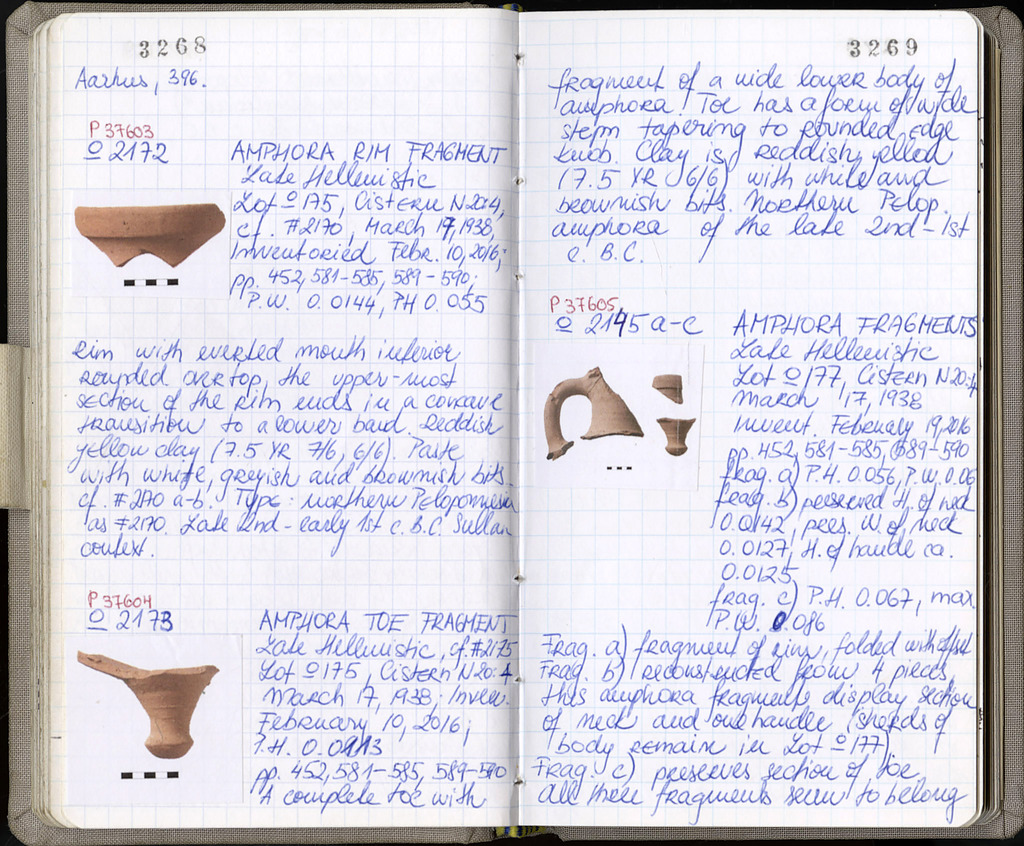 3268
Aarhus, 396.
P 37603
O 2172
AMPHORA RIM FRAGMENT
Late Hellenistic
Lot O 175, Cistern N 20:4,
cf. #2170, March 17, 1938,
Inventoried Febr. 10, 2016;
pp. 452, 581-585, 589-590;
P.W. 0.0144, PH 0.055
rim with everted mouth inferior
rounded over top, the upper-most
section of the rim ends in a concave
transition to a lower band. Reddish
yellow clay (7.5 YR 7/6, 6/6). Paste
with white, greyish and brownish bits.
cf. #2170 a-b. Type: northern Peloponnesian
as #2170. Late 2nd - early 1st c. B.C. Sullan
context.
P 37604
O 2173
AMPHORA TOE FRAGMENT
Late Hellenistic, cf. #2175
Lot O 175, Cistern N 20:4
March 17, 1938; Inven.
February 10, 2016;
P.H. 0.0113
pp. 452, 581-585, 589-590
A complete toe with
3269
fragment of a wide lower body of
amphora. Toe has a form of wide
stem tapering to rounded edge
knob. Clay is reddish yellow
(7.5 YR 6/6) with white and
brownish bits. Northern Pelop.
amphora of the late 2nd-1st
c. B.C.
P 37605
O 2145 a-c
AMPHORA FRAGMENTS
Late Hellenistic
Lot O 177, Cistern N 20:4
March 17, 1938
Invent. February 19, 2016
pp. 452, 581-585, 589-590
frag. a) P.H. 0.056, P.W. 0.06
frag. b) preserved H. of neck
0.0142, pres. W. of neck
0.0127, H. of handle ca.
0.0125
frag. c) P.H. 0.067, max.
P.W. 0.086
Frag. a) fragment of rim, folded with offset
Frag. b) reconstructed from 4 pieces,
this amphora fragments display section
of neck and one handle (sherds of
body remain in Lot O 177).
Frag. c) preserves section of toe.
All three fragments seem to belong